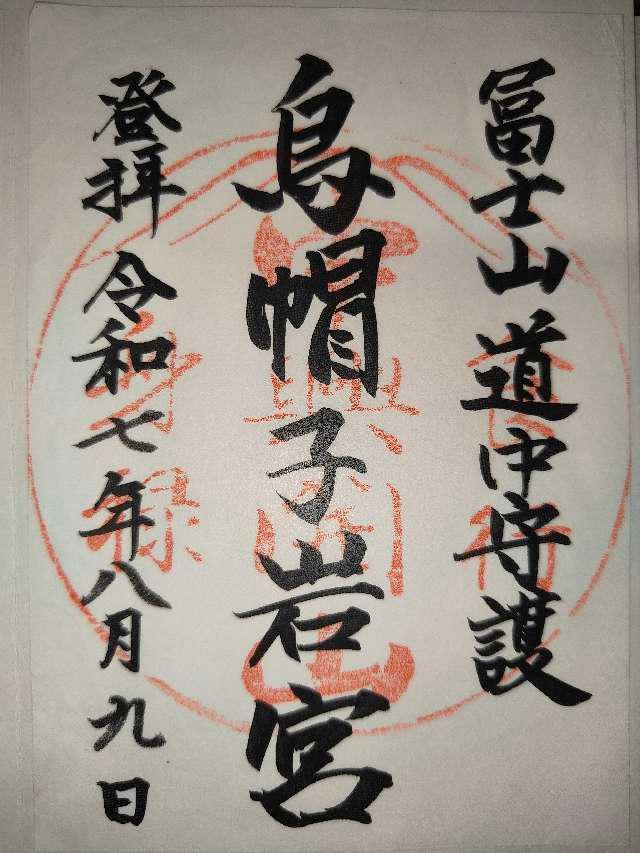 冨士山道中守護
烏帽子岩宮
登拝 令和七年八月九日